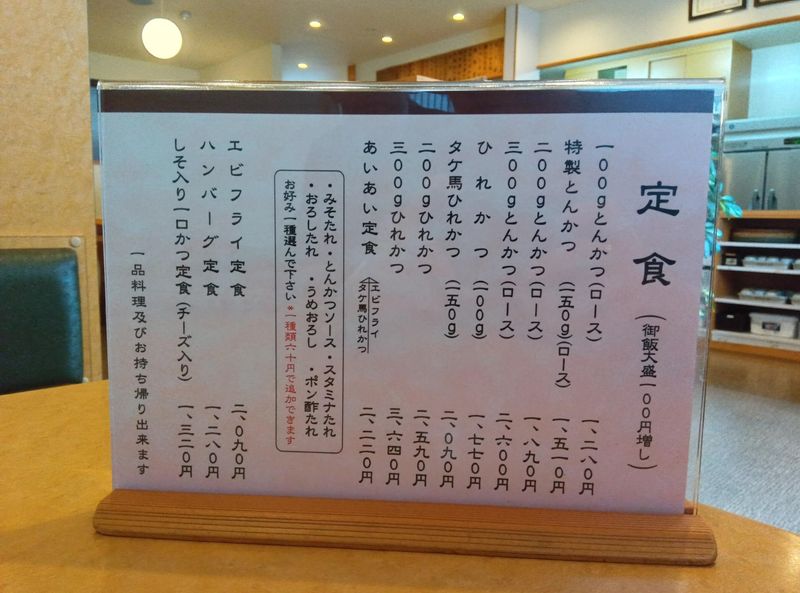 定食（御飯大盛一〇〇円増し）
一〇〇gとんかつ（ロース） 一、二八〇円
特製とんかつ（一五〇g）（ロース） 一、五一〇円
二〇〇gとんかつ（ロース） 一、八九〇円
三〇〇gとんかつ（ロース） 二、六〇〇円
ひれかつ（一〇〇g） 一、七七〇円
タケ馬ひれかつ（一五〇g） 二、〇九〇円
二〇〇gひれかつ 二、五九〇円
三〇〇gひれかつ 三、六四〇円
あいあい定食〈エビフライ タケ馬ひれかつ〉 二、二二〇円
・みそたれ・とんかつソース・スタミナたれ
・おろしたれ ・うめおろし ・ポン酢たれ
お好み一種選んで下さい＊一種類六十円で追加できます
エビフライ定食 二、〇九〇円
ハンバーグ定食 一、二八〇円
しそ入り一口かつ定食（チーズ入り） 一、三二〇円
一品料理及びお持ち帰り出来ます